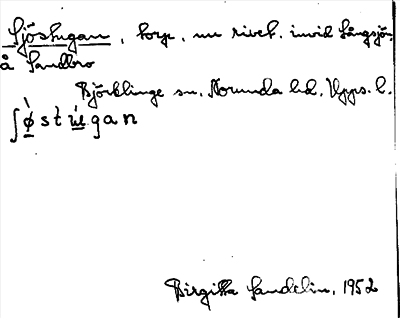 Sjöstugan, torp, nu rivet. invid Långsjön
å Sandbro
Björklinge sn. Norunda hd. Upps. l.
ʃø̀stu̇gan
Birgitta Sandelin, 1952